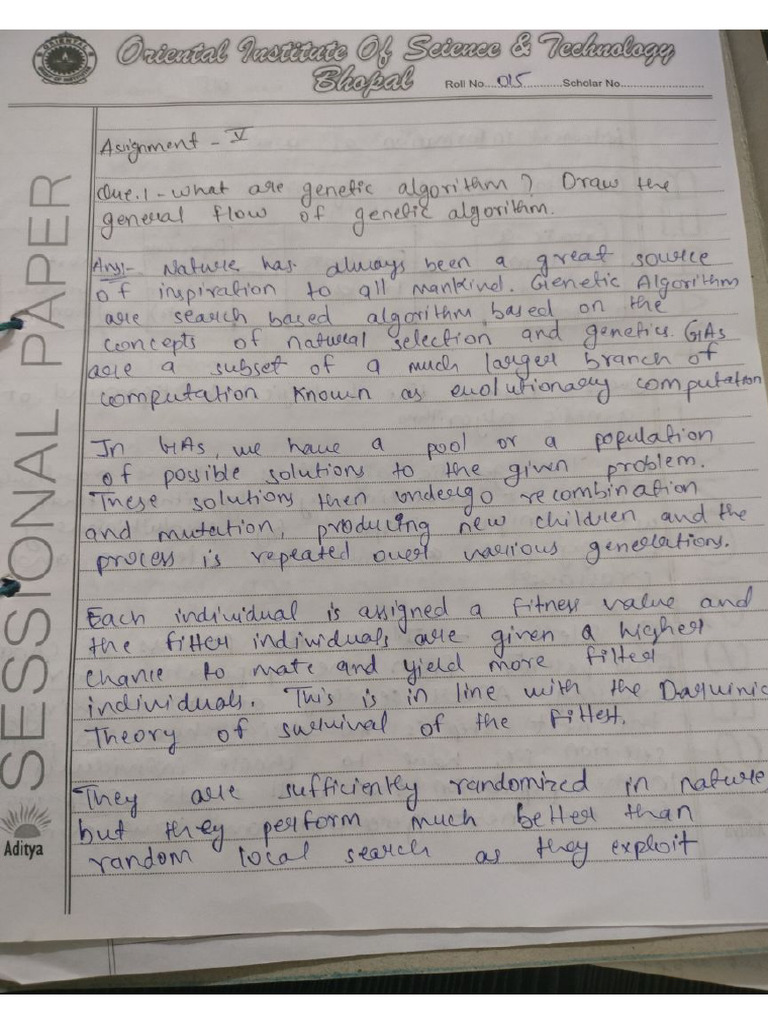 Oriental Institute Of Science & Technology
Bhopal
Roll No....015............Scholar No.........................
Assignment - V
Que.1 - What are genetic algorithm? Draw the
general flow of genetic algorithm.
Ans:- Nature has always been a great source
of inspiration to all mankind. Genetic Algorithm
are search based algorithm based on the
concepts of natural selection and genetics. GAs
are a subset of a much larger branch of
computation known as evolutionary computation
In GAs, we have a pool or a population
of possible solutions to the given problem.
These solutions then undergo recombination
and mutation, producing new children and the
process is repeated over various generations.
Each individual is assigned a fitness value and
the fitter individuals are given a higher
chance to mate and yield more fitter
individuals. This is in line with the Darwinic
Theory of survival of the fittest.
They are sufficiently randomized in nature
but they perform much better than
random local search as they exploit
SESSIONAL PAPER
Aditya